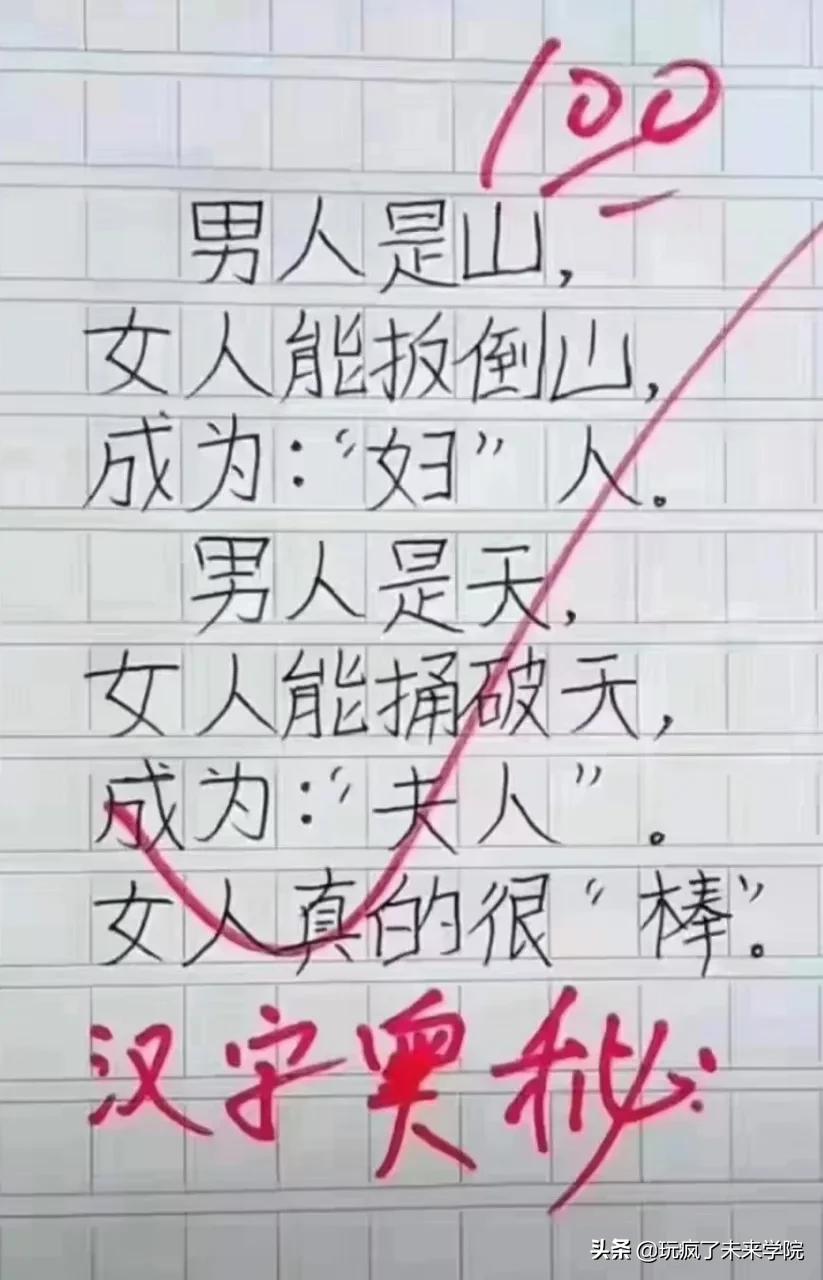 100
男人是山，
女人能扳倒山，
成为：“妇”人。
男人是天，
女人能捅破天，
成为：“夫人”。
女人真的很“棒”。
汉字奥秘
头条 @玩疯了未来学院